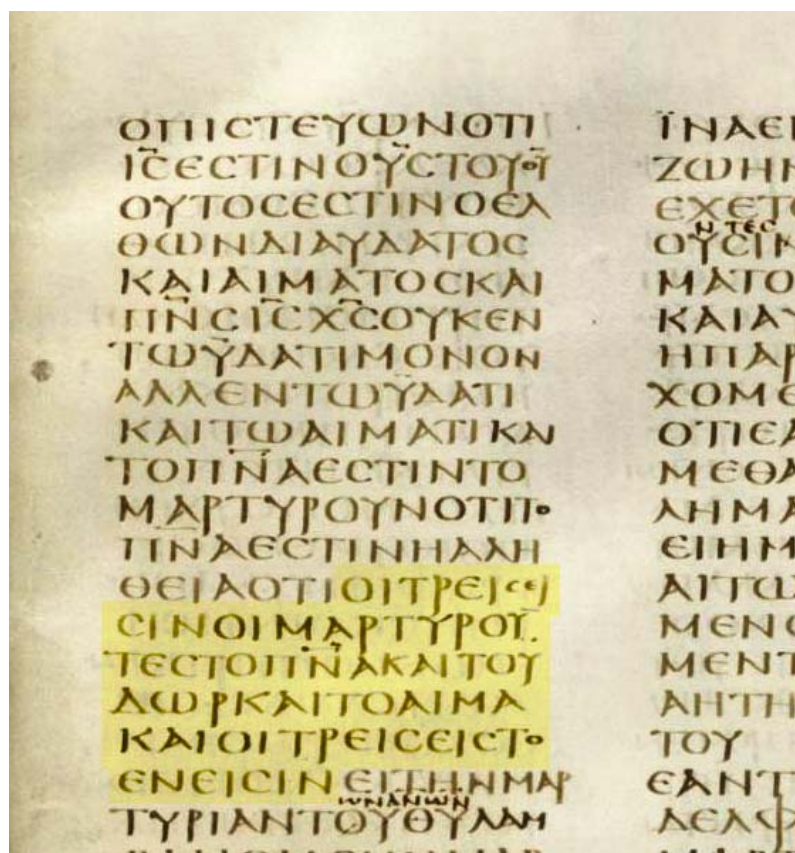 ΟΠΙϹΤΕΥΩΝΟΤΙ
Ι̅Ϲ̅ΕϹΤΙΝΟΥ̅Ϲ̅ΤΟΥΘ̅Υ̅
ΟΥΤΟϹΕϹΤΙΝΟΕΛ
ΘΩΝΔΙΑΥΔΑΤΟϹ
ΚΑΙΑΙΜΑΤΟϹΚΑΙ
Π̅Ν̅Ϲ̅Ι̅Ϲ̅Χ̅Ϲ̅ΟΥΚΕΝ
ΤΩΫΔΑΤΙΜΟΝΟΝ
ΑΛΛΕΝΤΩΫΔΑΤΙ
ΚΑΙΤΩΑΙΜΑΤΙΚΑΙ
ΤΟΠ̅Ν̅Α̅ΕϹΤΙΝΤΟ
ΜΑΡΤΥΡΟΥΝΟΤΙΤΟ
Π̅Ν̅Α̅ΕϹΤΙΝΗΑΛΗ
ΘΕΙΑΟΤΙΟΙΤΡΕΙϹΕΙ
ϹΙΝΟΙΜΑΡΤΥΡΟΥ̅
ΤΕϹΤΟΠ̅Ν̅Α̅ΚΑΙΤΟΥ
ΔΩΡΚΑΙΤΟΑΙΜΑ
ΚΑΙΟΙΤΡΕΙϹΕΙϹΤΟ
ΕΝΕΙϹΙΝΕΙΤΗΝΜΑΡ
ΤΩΝΑ̅Ν̅Ω̅Ν̅
ΤΥΡΙΑΝΤΟΥΘ̅Υ̅ΛΑΜ
ΪΝΑΕΙ
ΖΩΗΝ
ΕΧΕΤ
ΝΤΕϹ
ΟΥϹΙΝ
ΜΑΤΟ
ΚΑΙΑΥ
ΗΠΑΡ
ΧΟΜΕ
ΟΤΙΕΑ
ΜΕΘΑ
ΛΗΜΑ
ΕΙΗΜ
ΑΙΤΩ
ΜΕΝΟ
ΜΕΝΤ
ΑΗΤΗ
ΤΟΥ
ΕΑΝΤ
ΔΕΛΦ